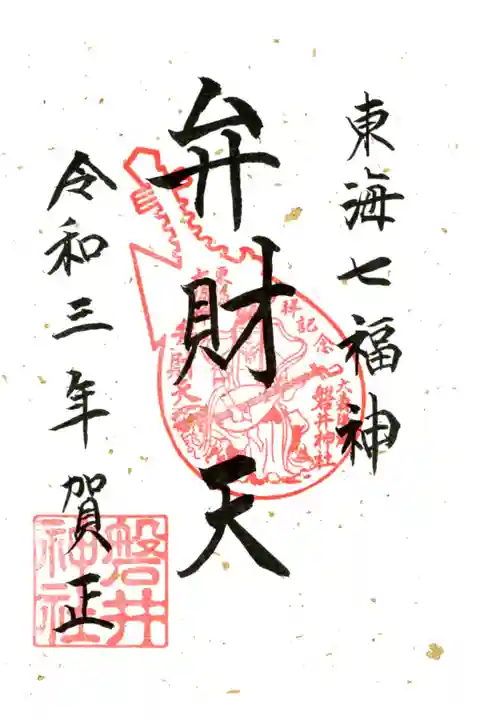 東海七福神
弁財天
令和三年賀正
磐井
神社
祥記念
磐井神社
財天